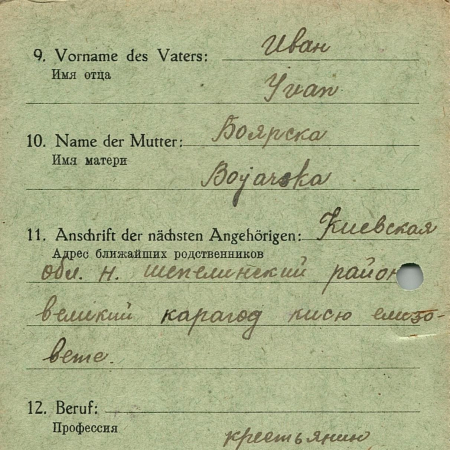 9. Vorname des Vaters: Иван
Имя отца
Yvan
10. Name der Mutter: Боярска
Имя матери
Bojarska
11. Anschrift der nächsten Angehörigen: Киевская
Адрес ближайших родственников
обл. н. шепелинский район
великий карагод кисю елизо-
вете.
12. Beruf:
Профессия
крестьянин,